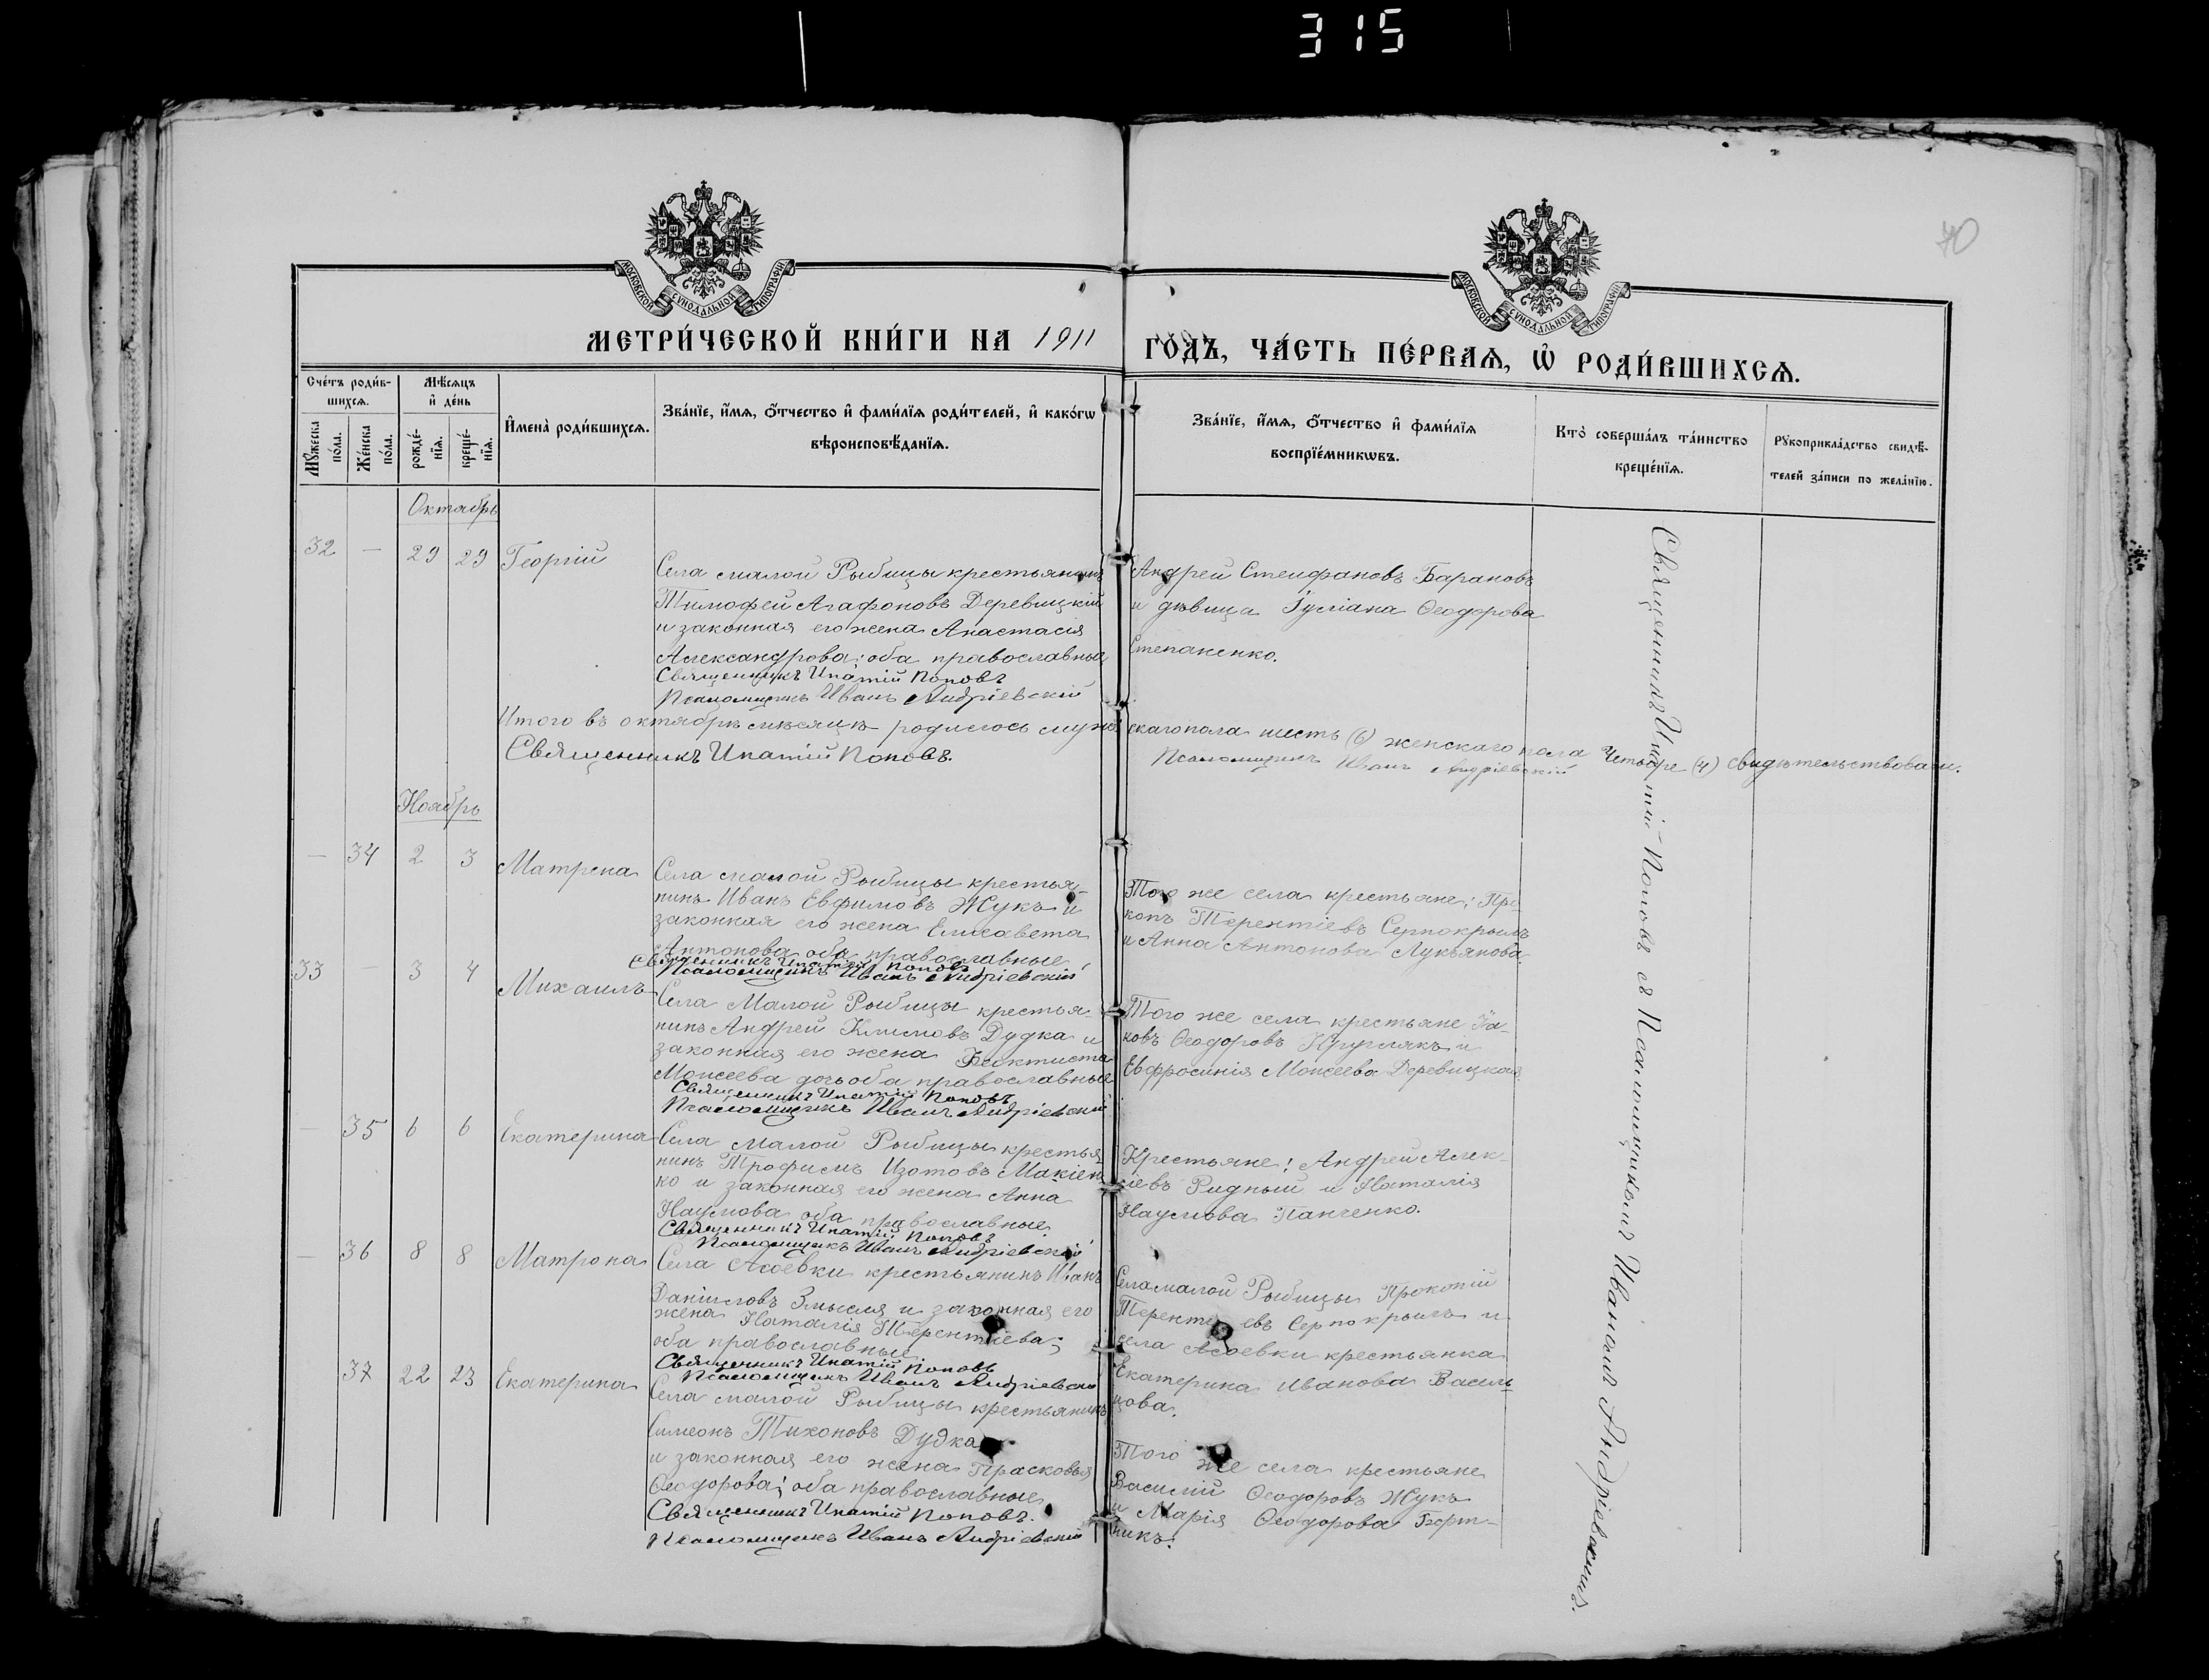 315
70
МОСКОВСКОЙ СѴНОДАЛЬНОЙ ТИПОГРАФІИ
МОСКОВСКОЙ СѴНОДАЛЬНОЙ ТИПОГРАФІИ
МЕТРИ́ЧЕСКОЙ КНИ́ГИ НА 1911 ГО́ДЪ, ЧА́СТЬ ПЕ́РВАѦ, Ѡ҆ РОДИ́ВШИХСѦ.
Сче́тъ роди́в-
шихсѧ.
Мꙋ́жеска
по́ла.
Же́нска
по́ла.
Мѣ́сѧцъ
и҆ де́нь
рожде́-
нїѧ.
креще́-
нїѧ.
И҆мена̀ роди́вшихсѧ.
Зва́нїе, и҆́мѧ, ѻ҆́тчество и҆ фами́лїѧ роди́телей, и҆ како́гѡ
вѣроисповѣ́данїѧ.
Зва́нїе, и҆́мѧ, ѻ҆́тчество и҆ фами́лїѧ
воспрїе́мникѡвъ.
Кто̀ соверша́лъ та́инство
креще́нїѧ.
Рꙋкоприкла́дство свидѣ́-
телей за́писи по жела́нїю.
Октябрь
32 — 29 29 Георгій
Села малой Рыбицы крестьянинъ
Тимофей Агафоновъ Деревицкій
и законная его жена Анастасія
Александрова; оба православные
Священникъ Ипатій Поповъ
Псаломщикъ Иванъ Андріевскій
Андрей Стефановъ Барановъ
и дѣвица Іуліана Ѳеодорова
Степаненко.
Итого въ октябрѣ мѣсяцѣ родилось мужескаго пола шесть (6) женскаго пола Четыре (4) свидѣтельствовали.
Священникъ Ипатій Поповъ. Псаломщикъ Иванъ Андріевскій
Ноябрь
— 34 2 3 Матрона
Села малой Рыбицы крестья-
нинъ Иванъ Евфимовъ Жукъ и
законная его жена Елисавета
Антонова оба православные
Священникъ Ипатій Поповъ
Псаломщикъ Иванъ Андріевскій
Того же села крестьяне: Про-
копъ Терентіевъ Серпокрылъ
и Анна Антонова Лукьянова.
33 — 3 4 Михаилъ
Села Малой Рыбицы крестья-
нинъ Андрей Климовъ Дудка и
законная его жена Феоктиста
Моисеева дочь оба православные
Священникъ Ипатій Поповъ
Псаломщикъ Иванъ Андріевскій
Того же села крестьяне Іа-
ковъ Ѳеодоровъ Круглякъ и
Евфросинія Моисеева Деревицкая
— 35 6 6 Екатерина
Села малой Рыбицы крестья-
нинъ Трофимъ Изотовъ Макіен-
ко и законная его жена Анна
Наумова оба православные
Священникъ Ипатій Поповъ
Псаломщикъ Иванъ Андріевскій
Крестьяне: Андрей Алек-
сіевъ Ридный и Наталія
Наумова Панченко.
— 36 8 8 Матрона
Села Асоевки крестьянинъ Иванъ
Даніиловъ Змысля и законная его
жена Наталія Терентіева;
оба православные
Священникъ Ипатій Поповъ
Псаломщикъ Иванъ Андріевскій
Села малой Рыбицы Прокопій
Терентіевъ Серпокрылъ и
села Асоевки крестьянка
Екатерина Иванова Василь-
цова.
37 22 23 Екатерина
Села малой Рыбицы крестьянинъ
Симеонъ Тихоновъ Дудка
и законная его жена Прасковья
Ѳеодорова; оба православные
Священникъ Ипатій Поповъ.
Псаломщикъ Иванъ Андріевскій
Того же села крестьяне
Василій Ѳеодоровъ Жукъ
и Марія Ѳеодорова Борт-
никъ.
Священникъ Ипатій Поповъ съ Псаломщикомъ Иваномъ Андріевскимъ.